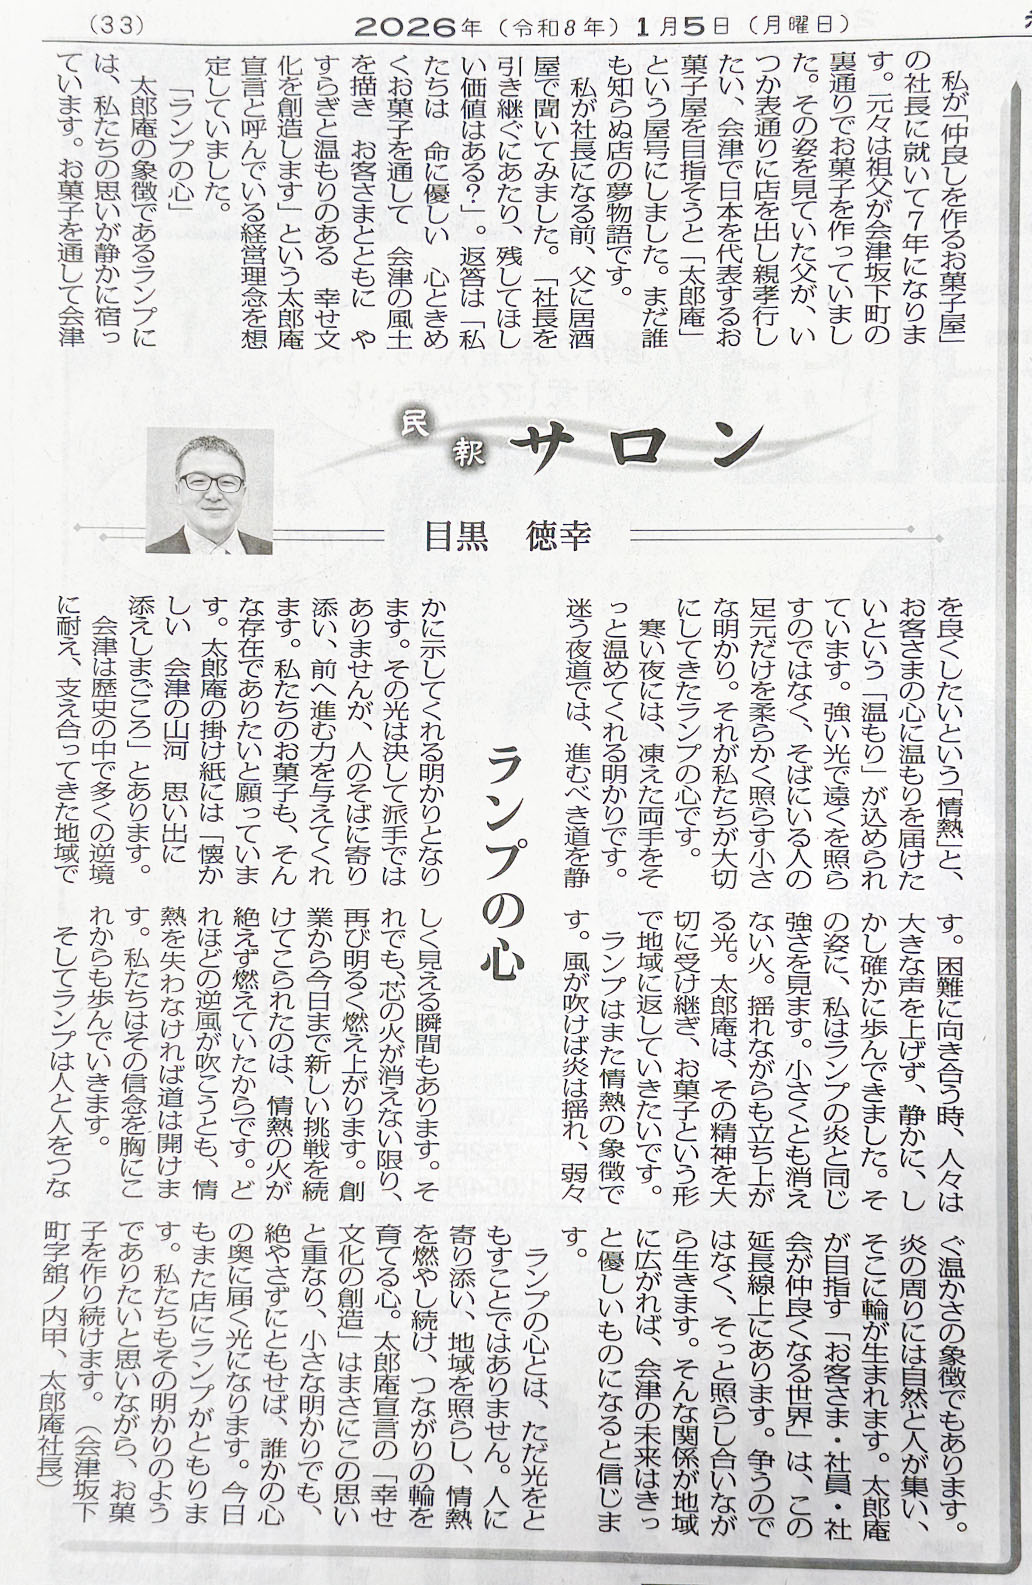 (33)
2026年(令和8年)1月5日(月曜日)
民報サロン
目黒　徳幸
ランプの心
　私が「仲良しを作るお菓子屋」
の社長に就いて7年になりま
す。元々は祖父が会津坂下町の
裏通りでお菓子を作っていまし
た。その姿を見ていた父が、い
つか表通りに店を出し親孝行し
たい、会津で日本を代表するお
菓子屋を目指そうと「太郎庵」
という屋号にしました。まだ誰
も知らぬ店の夢物語です。
　私が社長になる前、父に居酒
屋で聞いてみました。「社長を
引き継ぐにあたり、残してほし
い価値はある?」。返答は「私
たちは　命に優しい　心ときめ
くお菓子を通して　会津の風土
を描き　お客さまとともに　や
すらぎと温もりのある　幸せ文
化を創造します」という太郎庵
宣言と呼んでいる経営理念を想
定していました。
　「ランプの心」
　太郎庵の象徴であるランプに
は、私たちの思いが静かに宿っ
ています。お菓子を通して会津
を良くしたいという「情熱」と、
お客さまの心に温もりを届けた
いという「温もり」が込められ
ています。強い光で遠くを照ら
すのではなく、そばにいる人の
足元だけを柔らかく照らす小さ
な明かり。それが私たちが大切
にしてきたランプの心です。
　寒い夜には、凍えた両手をそ
っと温めてくれる明かりです。
迷う夜道では、進むべき道を静
かに示してくれる明かりとなり
ます。その光は決して派手では
ありませんが、人のそばに寄り
添い、前へ進む力を与えてくれ
ます。私たちのお菓子も、そん
な存在でありたいと願っていま
す。太郎庵の掛け紙には「懐か
しい　会津の山河　思い出に
添えしまごころ」とあります。
　会津は歴史の中で多くの逆境
に耐え、支え合ってきた地域で
す。困難に向き合う時、人々は
大きな声を上げず、静かに、し
かし確かに歩んできました。そ
の姿に、私はランプの炎と同じ
強さを見ます。小さくとも消え
ない火。揺れながらも立ち上が
る光。太郎庵は、その精神を大
切に受け継ぎ、お菓子という形
で地域に返していきたいです。
　ランプはまた情熱の象徴で
す。風が吹けば炎は揺れ、弱々
しく見える瞬間もあります。そ
れでも、芯の火が消えない限り、
再び明るく燃え上がります。創
業から今日まで新しい挑戦を続
けてこられたのは、情熱の火が
絶えず燃えていたからです。ど
れほどの逆風が吹こうとも、情
熱を失わなければ道は開けま
す。私たちはその信念を胸にこ
れからも歩んでいきます。
　そしてランプは人と人をつな
ぐ温かさの象徴でもあります。
炎の周りには自然と人が集い、
そこに輪が生まれます。太郎庵
が目指す「お客さま・社員・社
会が仲良くなる世界」は、この
延長線上にあります。争うので
はなく、そっと照らし合いなが
ら生きます。そんな関係が地域
に広がれば、会津の未来はきっ
と優しいものになると信じま
す。
　ランプの心とは、ただ光をと
もすことではありません。人に
寄り添い、地域を照らし、情熱
を燃やし続け、つながりの輪を
育てる心。太郎庵宣言の「幸せ
文化の創造」はまさにこの思い
と重なり、小さな明かりでも、
絶やさずにともせば、誰かの心
の奥に届く光になります。今日
もまた店にランプがともりま
す。私たちもその明かりのよう
でありたいと思いながら、お菓
子を作り続けます。（会津坂下
町字舘ノ内甲、太郎庵社長）